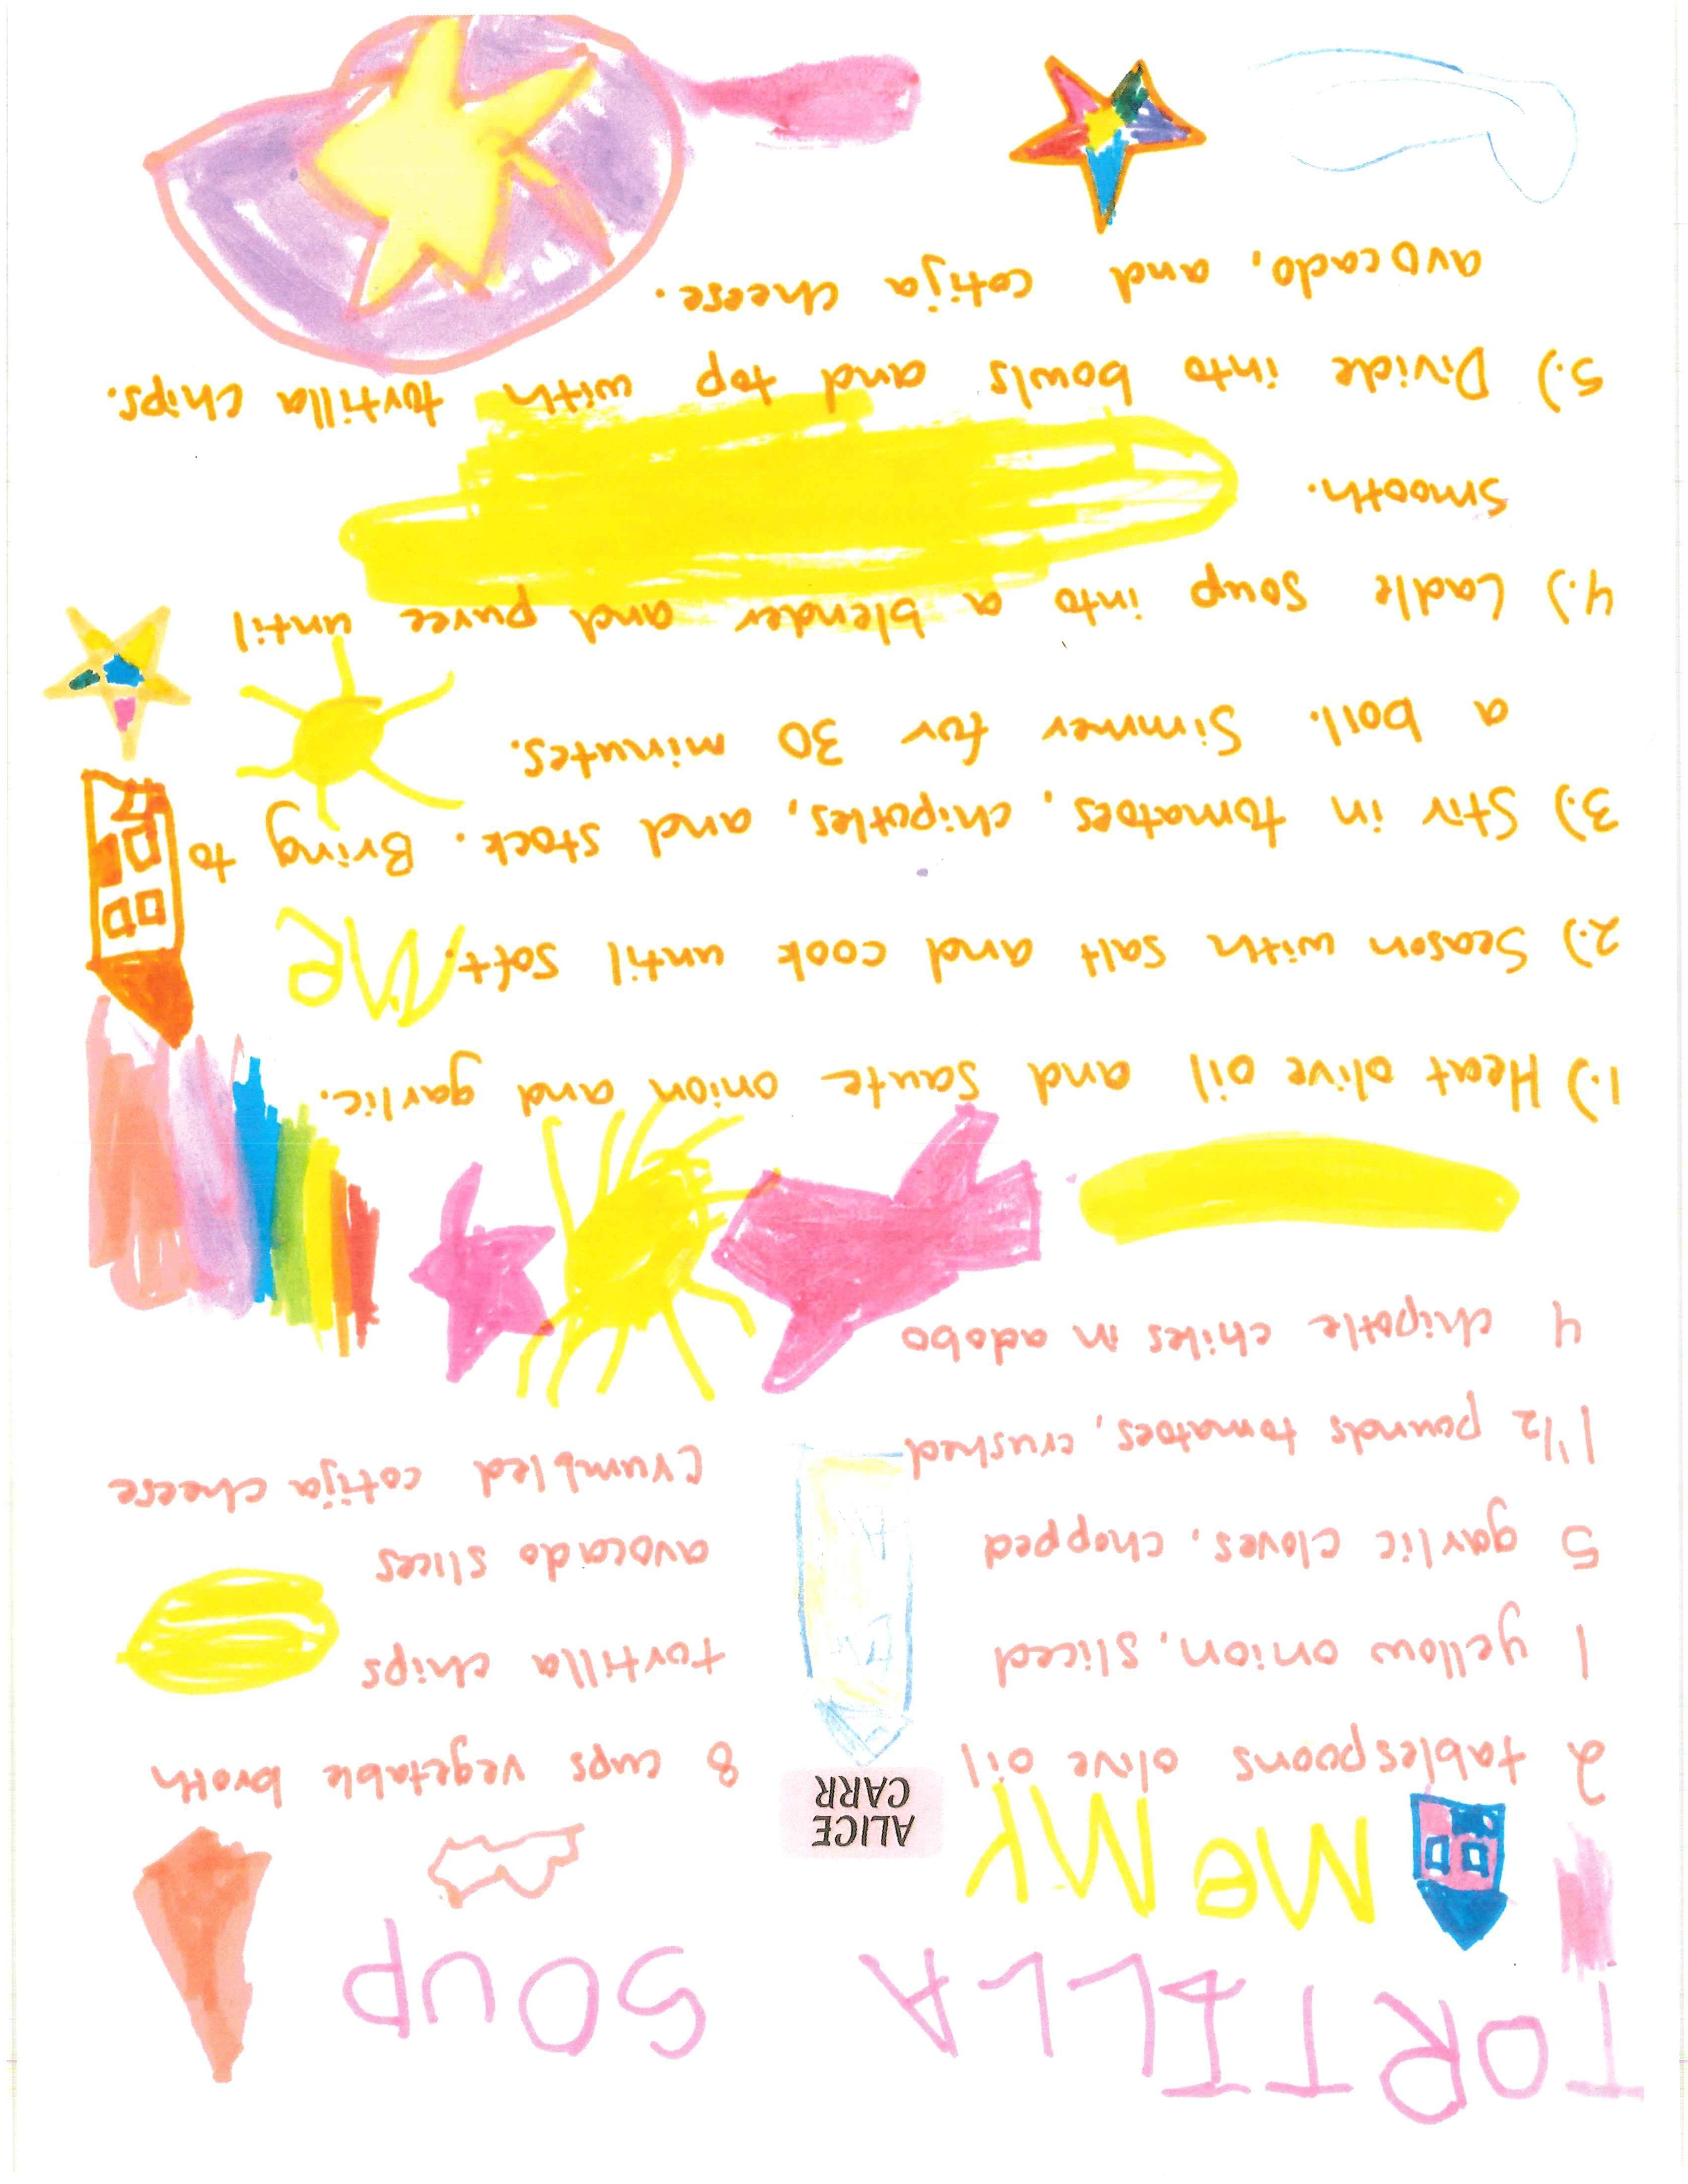 TORTILLA SOUP
Me MK
ALICE
CARR
2 tablespoons olive oil
1 yellow onion, sliced
5 garlic cloves, chopped
1 1/2 pounds tomatoes, crushed
4 chipotle chiles in adobo
8 cups vegetable broth
tortilla chips
avocado slices
crumbled cotija cheese
1.) Heat olive oil and saute onion and garlic.
2.) Season with salt and cook until soft.
Me
3.) Stir in tomatoes, chipotles, and stock. Bring to
a boil. Simmer for 30 minutes.
4.) Ladle soup into a blender and puree until
smooth.
5.) Divide into bowls and top with tortilla chips.
avocado, and cotija cheese.